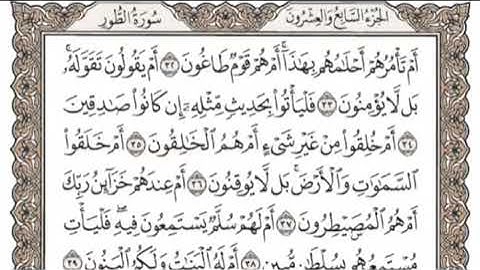 الجزء السابع والعشرون سورة الطور
أَمْ تَأْمُرُهُمْ أَحْلَامُهُم بِهَٰذَا ۚ أَمْ هُمْ قَوْمٌ طَاغُونَ ٣٢ أَمْ يَقُولُونَ تَقَوَّلَهُ ۚ
بَل لَّا يُؤْمِنُونَ ٣٣ فَلْيَأْتُوا بِحَدِيثٍ مِّثْلِهِ إِن كَانُوا صَادِقِينَ
٣٤ أَمْ خُلِقُوا مِنْ غَيْرِ شَيْءٍ أَمْ هُمُ الْخَالِقُونَ ٣٥ أَمْ خَلَقُوا
السَّمَاوَاتِ وَالْأَرْضَ ۚ بَل لَّا يُوقِنُونَ ٣٦ أَمْ عِندَهُمْ خَزَائِنُ رَبِّكَ
أَمْ هُمُ الْمُصَيْطِرُونَ ٣٧ أَمْ لَهُمْ سُلَّمٌ يَسْتَمِعُونَ فِيهِ ۖ فَلْيَأْتِ
مُسْتَمِعُهُم بِسُلْطَانٍ مُّبِينٍ ٣٨ أَمْ لَهُ الْبَنَاتُ وَلَكُمُ الْبَنُونَ ٣٩